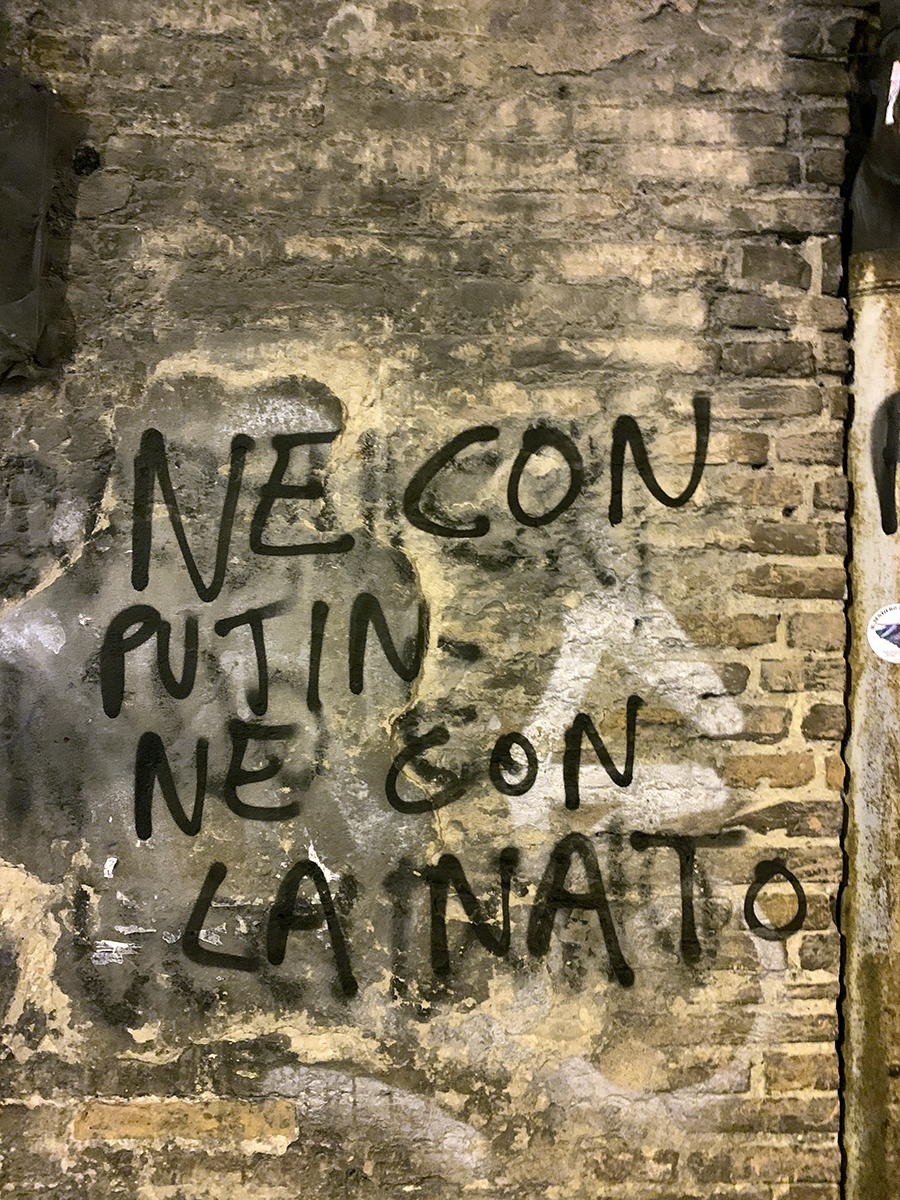 NE CON
PUTIN
NE CON
LA NATO